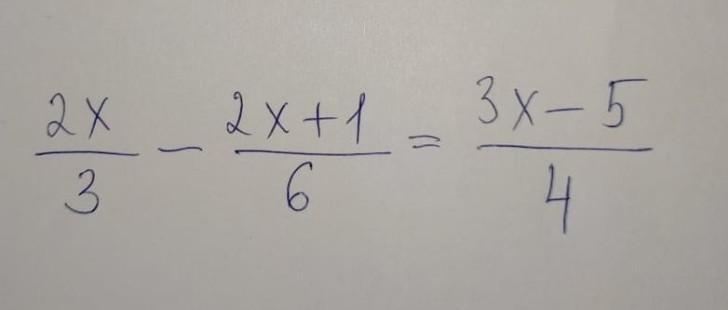 2x/3 − 2x+1/6 = 3x−5/4